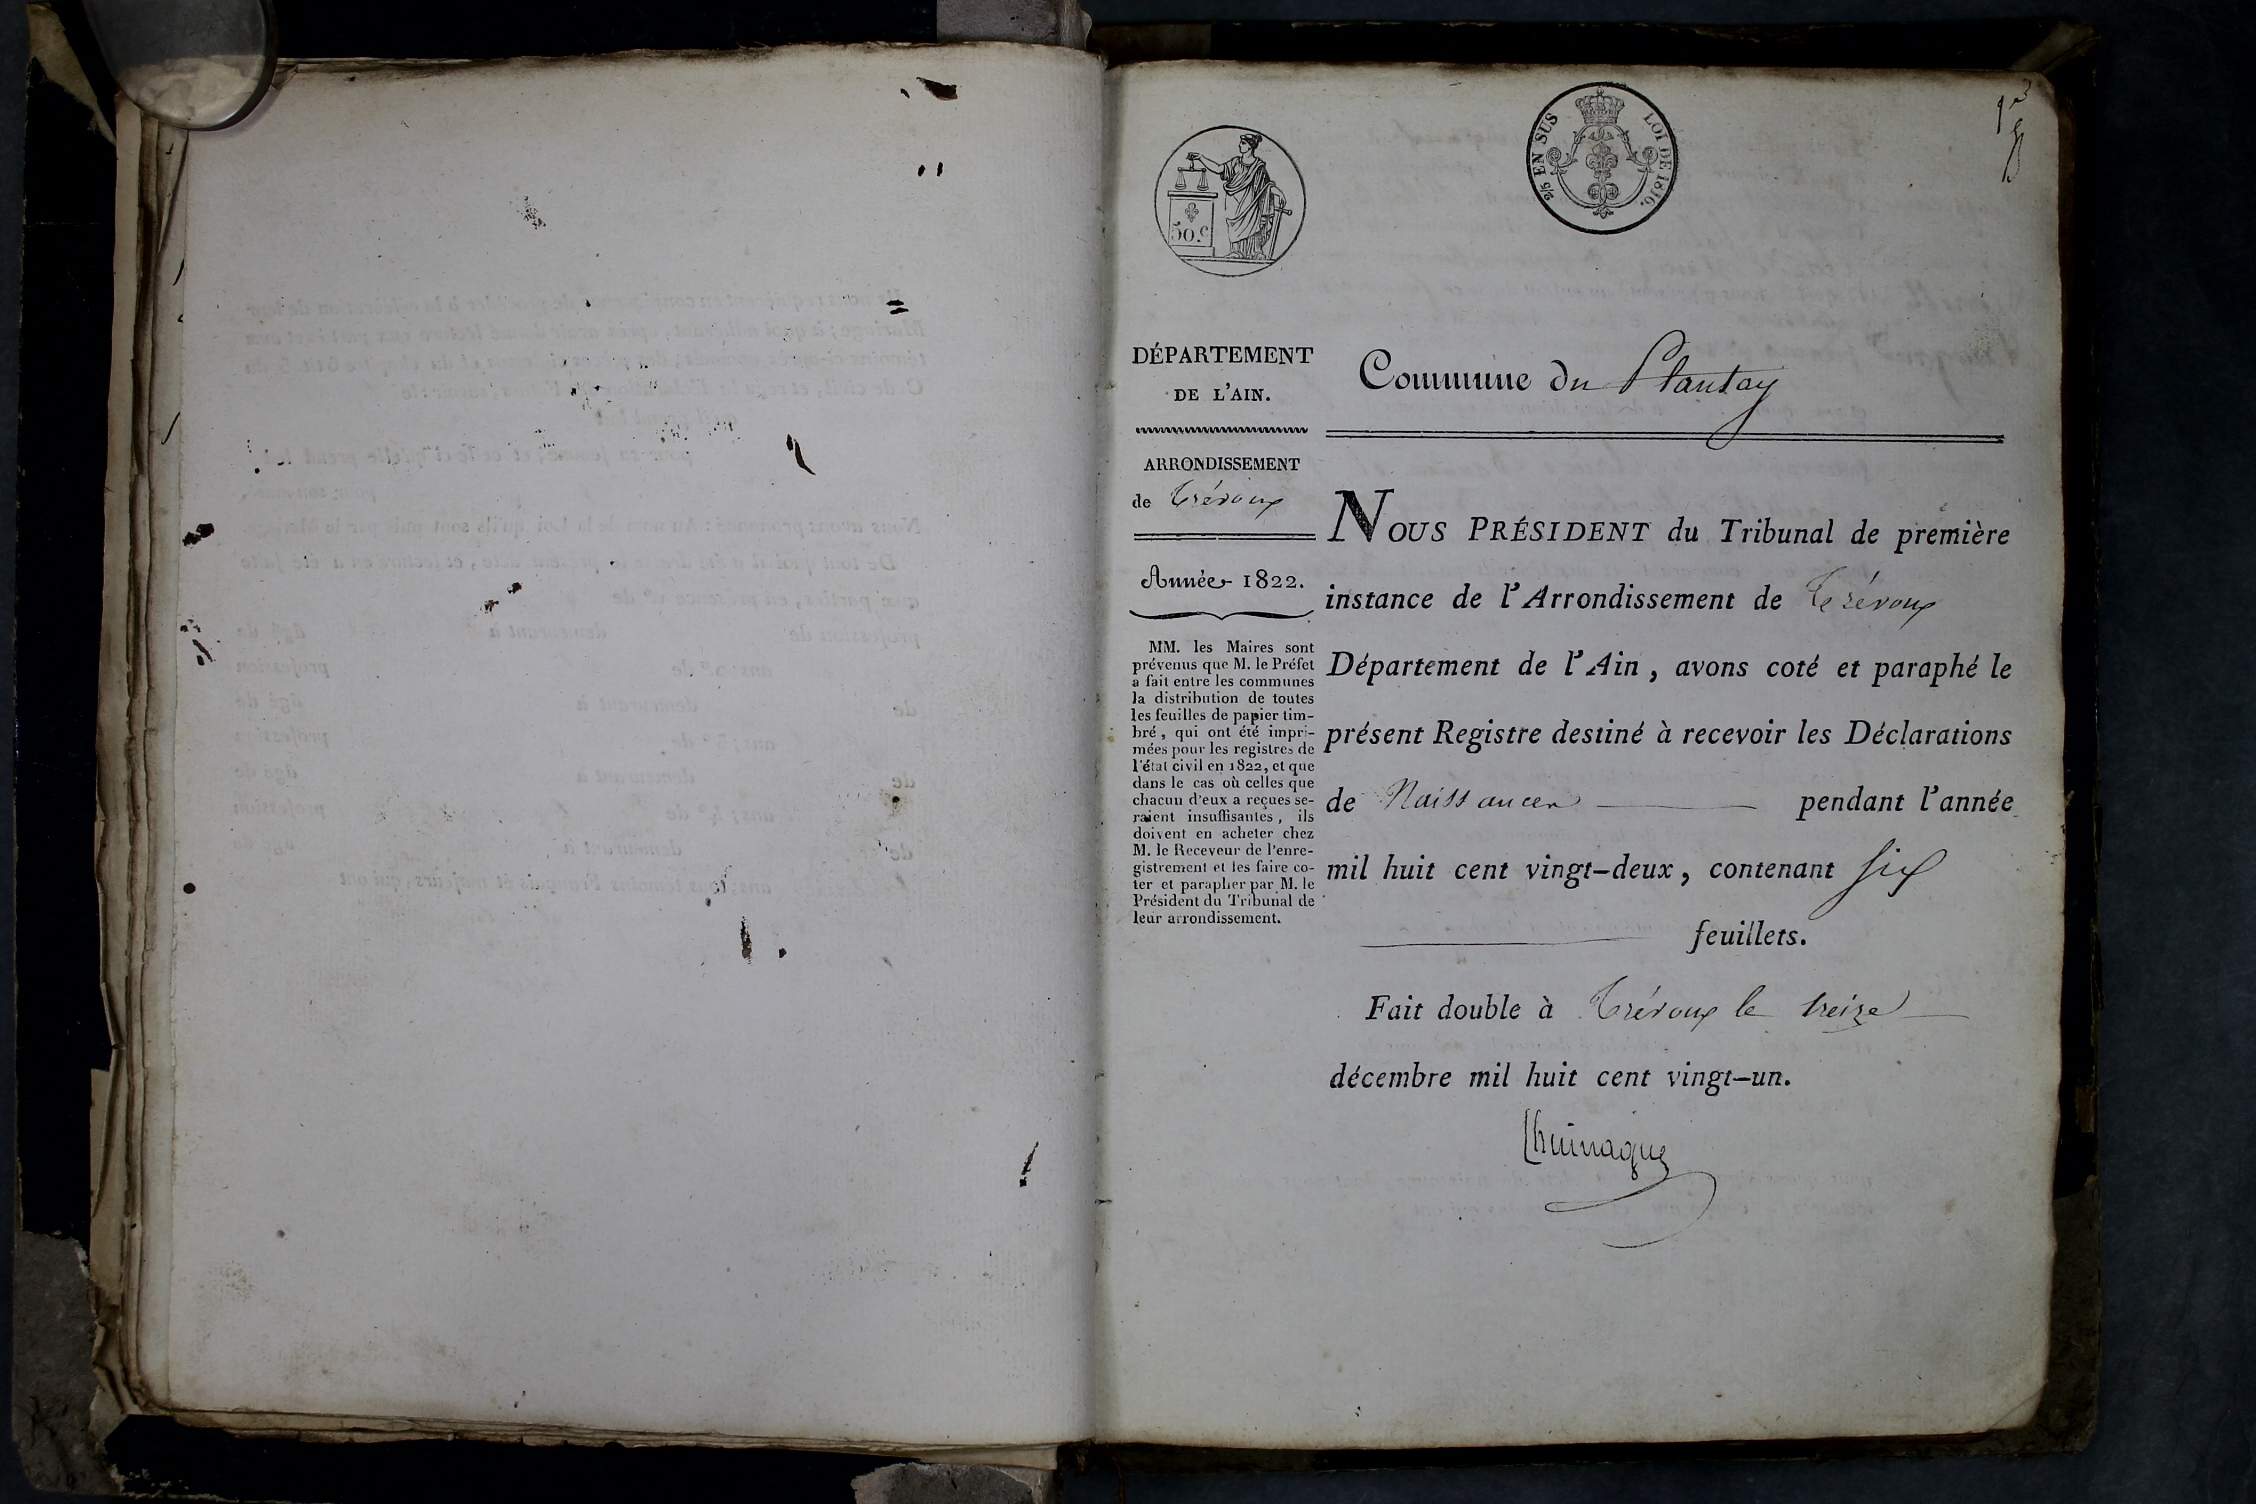 2/5 EN SUS LOI DE 1816.
50 c
DÉPARTEMENT
DE L'AIN.
ARRONDISSEMENT
de Trévoux
Année 1822.
MM. les Maires sont
prévenus que M. le Préfet
a fait entre les communes
la distribution de toutes
les feuilles de papier tim-
bré, qui ont été impri-
mées pour les registres de
l'état civil en 1822, et que
dans le cas où celles que
chacun d'eux a reçues se-
raient insuffisantes, ils
doivent en acheter chez
M. le Receveur de l'enre-
gistrement et les faire co-
ter et parapher par M. le
Président du Tribunal de
leur arrondissement.
Commune du Plantay
NOUS PRÉSIDENT du Tribunal de première
instance de l'Arrondissement de Trévoux
Département de l'Ain, avons coté et paraphé le
présent Registre destiné à recevoir les Déclarations
de Naissances pendant l'année
mil huit cent vingt-deux, contenant six
feuillets.
Fait double à Trévoux le treize
décembre mil huit cent vingt-un.